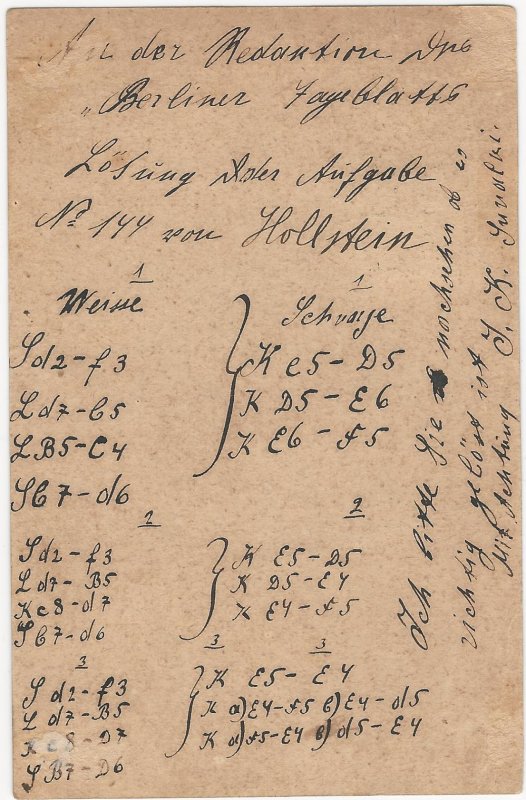 An der Redaktion des
„Berliner Tageblatts
Lösung der Aufgabe
No 144 von Hollstein
1
Weisse
Sd2-f3
Ld7-b5
LB5-C4
Sb7-d6
1
Schwarze
K e5-D5
K D5-E6
K E6-F5
2
Sd2-f3
Ld7-B5
Ke8-d7
Sb7-d6
2
K E5-D5
K D5-E4
K E4-F5
3
S d2-f3
L d7-B5
K e8-D7
S B7-D6
3
3
K E5-E4
K a)E4-F5 b)E4-d5
K a)F5-E4 b)d5-E4
Ich bitte Sie nachsehen ob es
richtig gelöst ist
Mit Achtung J. K. Suvalki.